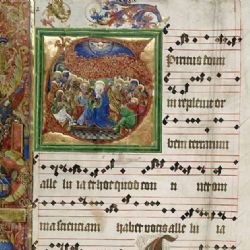 Piritus dom
ini repleuit or
bem terrarum
alle lu ia et hoc quod con ti net om
nia scienciam habet vocis alle lu ia